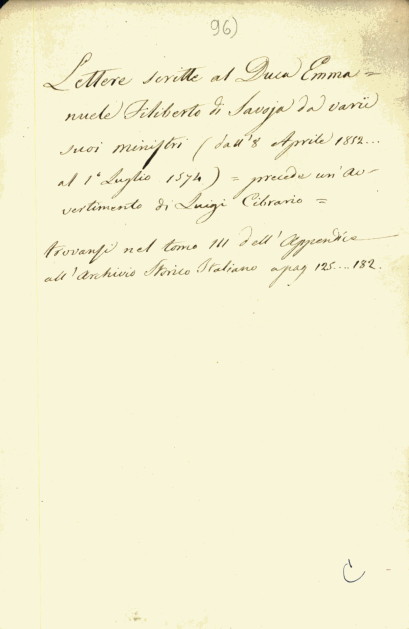 96)
Lettere scritte al Duca Emma=
nuele Filiberto di Savoja da varii
suoi ministri (dall'8 Aprile 1552...
al 1° Luglio 1574) = precede un'Av-
vertimento di Luigi Cibrario =
trovansi nel tomo III dell'Appendice
all'Archivio Storico Italiano a pag 125....182.
C